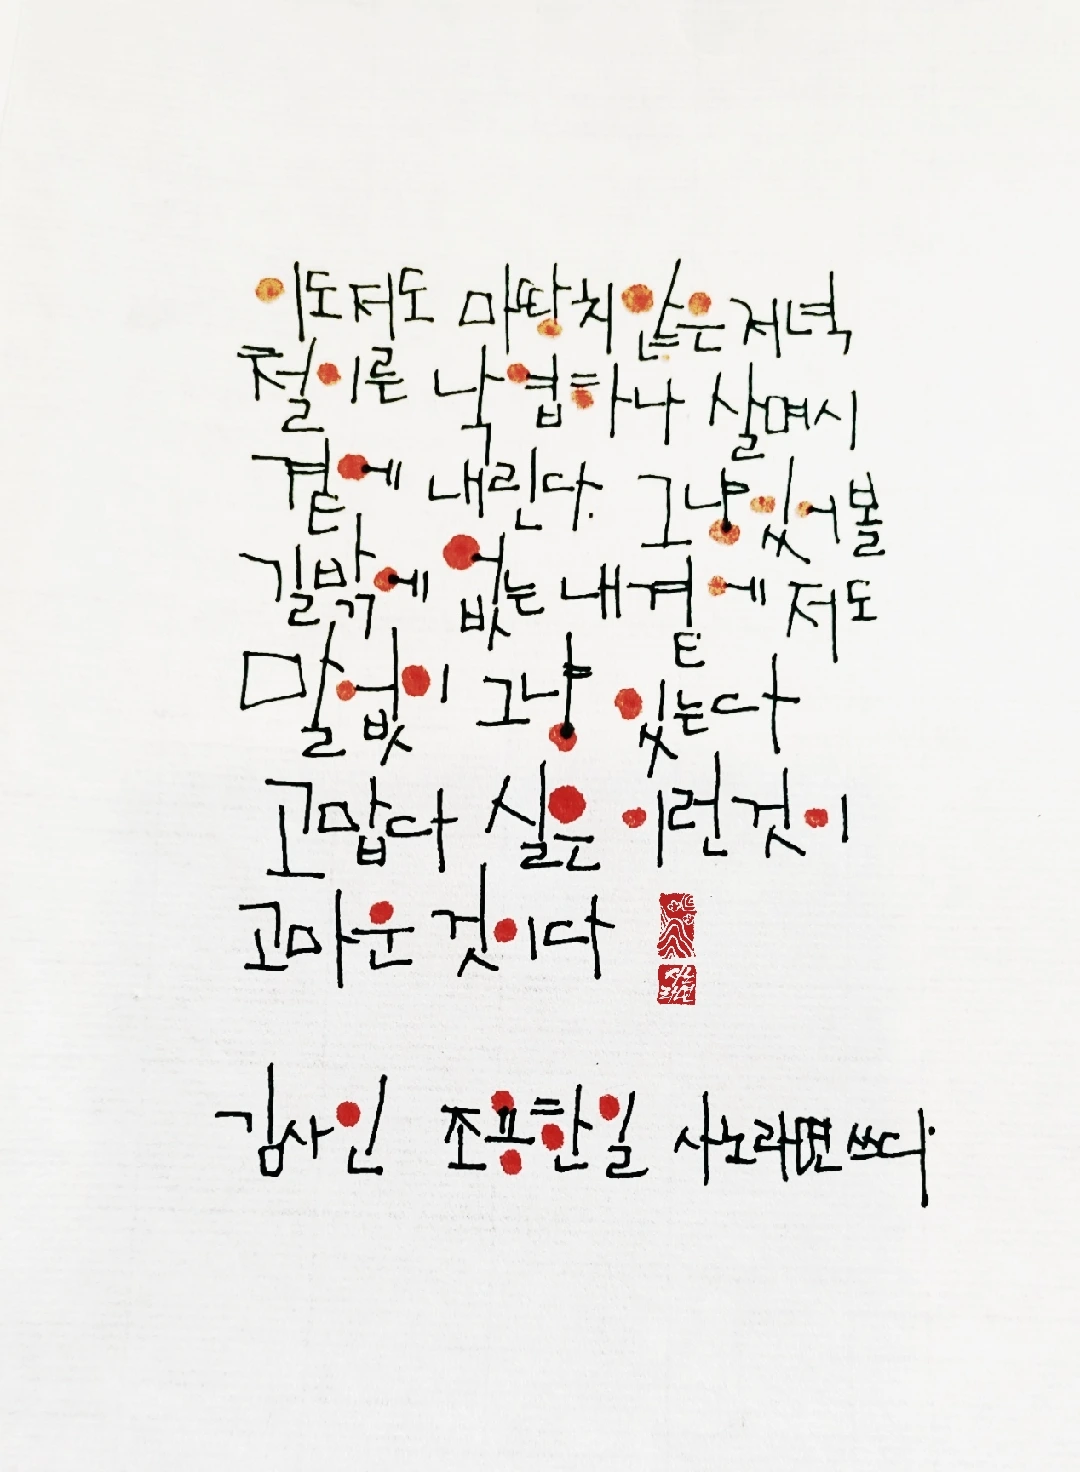 이도저도 마땅치 않은 저녁
철이른 낙엽하나 살며시
곁에 내린다. 그냥 있어볼
길밖에 없는 내곁에 저도
말없이 그냥 있는다
고맙다 실은 이런것이
고마운 것이다
김사인 조용한일 사노라면 쓰다